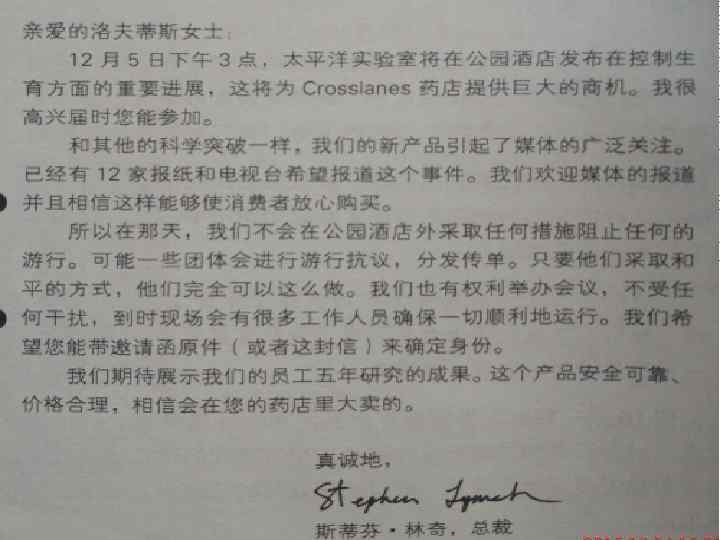 亲爱的洛夫蒂斯女士：
12 月 5 日下午 3 点，太平洋实验室将在公园酒店发布在控制生
育方面的重要进展，这将为 Crosslanes 药店提供巨大的商机。我很
高兴届时您能参加。
和其他的科学突破一样，我们的新产品引起了媒体的广泛关注。
已经有 12 家报纸和电视台希望报道这个事件。我们欢迎媒体的报道
并且相信这样能够使消费者放心购买。
所以在那天，我们不会在公园酒店外采取任何措施阻止任何的
游行。可能一些团体会进行游行抗议，分发传单。只要他们采取和
平的方式，他们完全可以这么做。我们也有权利举办会议，不受任
何干扰，到时现场会有很多工作人员确保一切顺利地运行。我们希
望您能带邀请函原件（或者这封信）来确定身份。
我们期待展示我们的员工五年研究的成果。这个产品安全可靠、
价格合理，相信会在您的药店里大卖的。
真诚地，
Stephen Lynch
斯蒂芬·林奇，总裁